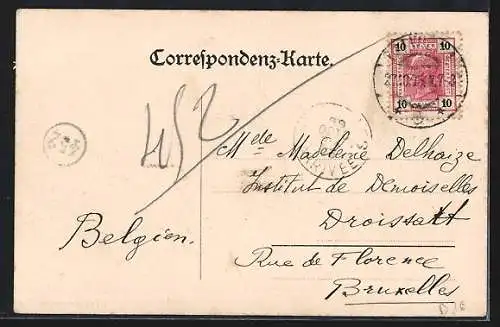 Correspondenz-Karte.
10 10
10 10
452
ARRIVÉE
Mde Madeleine Delhaize
Institut de Demoiselles
Droissart
Belgien.
Rue de Florence
Bruxelles